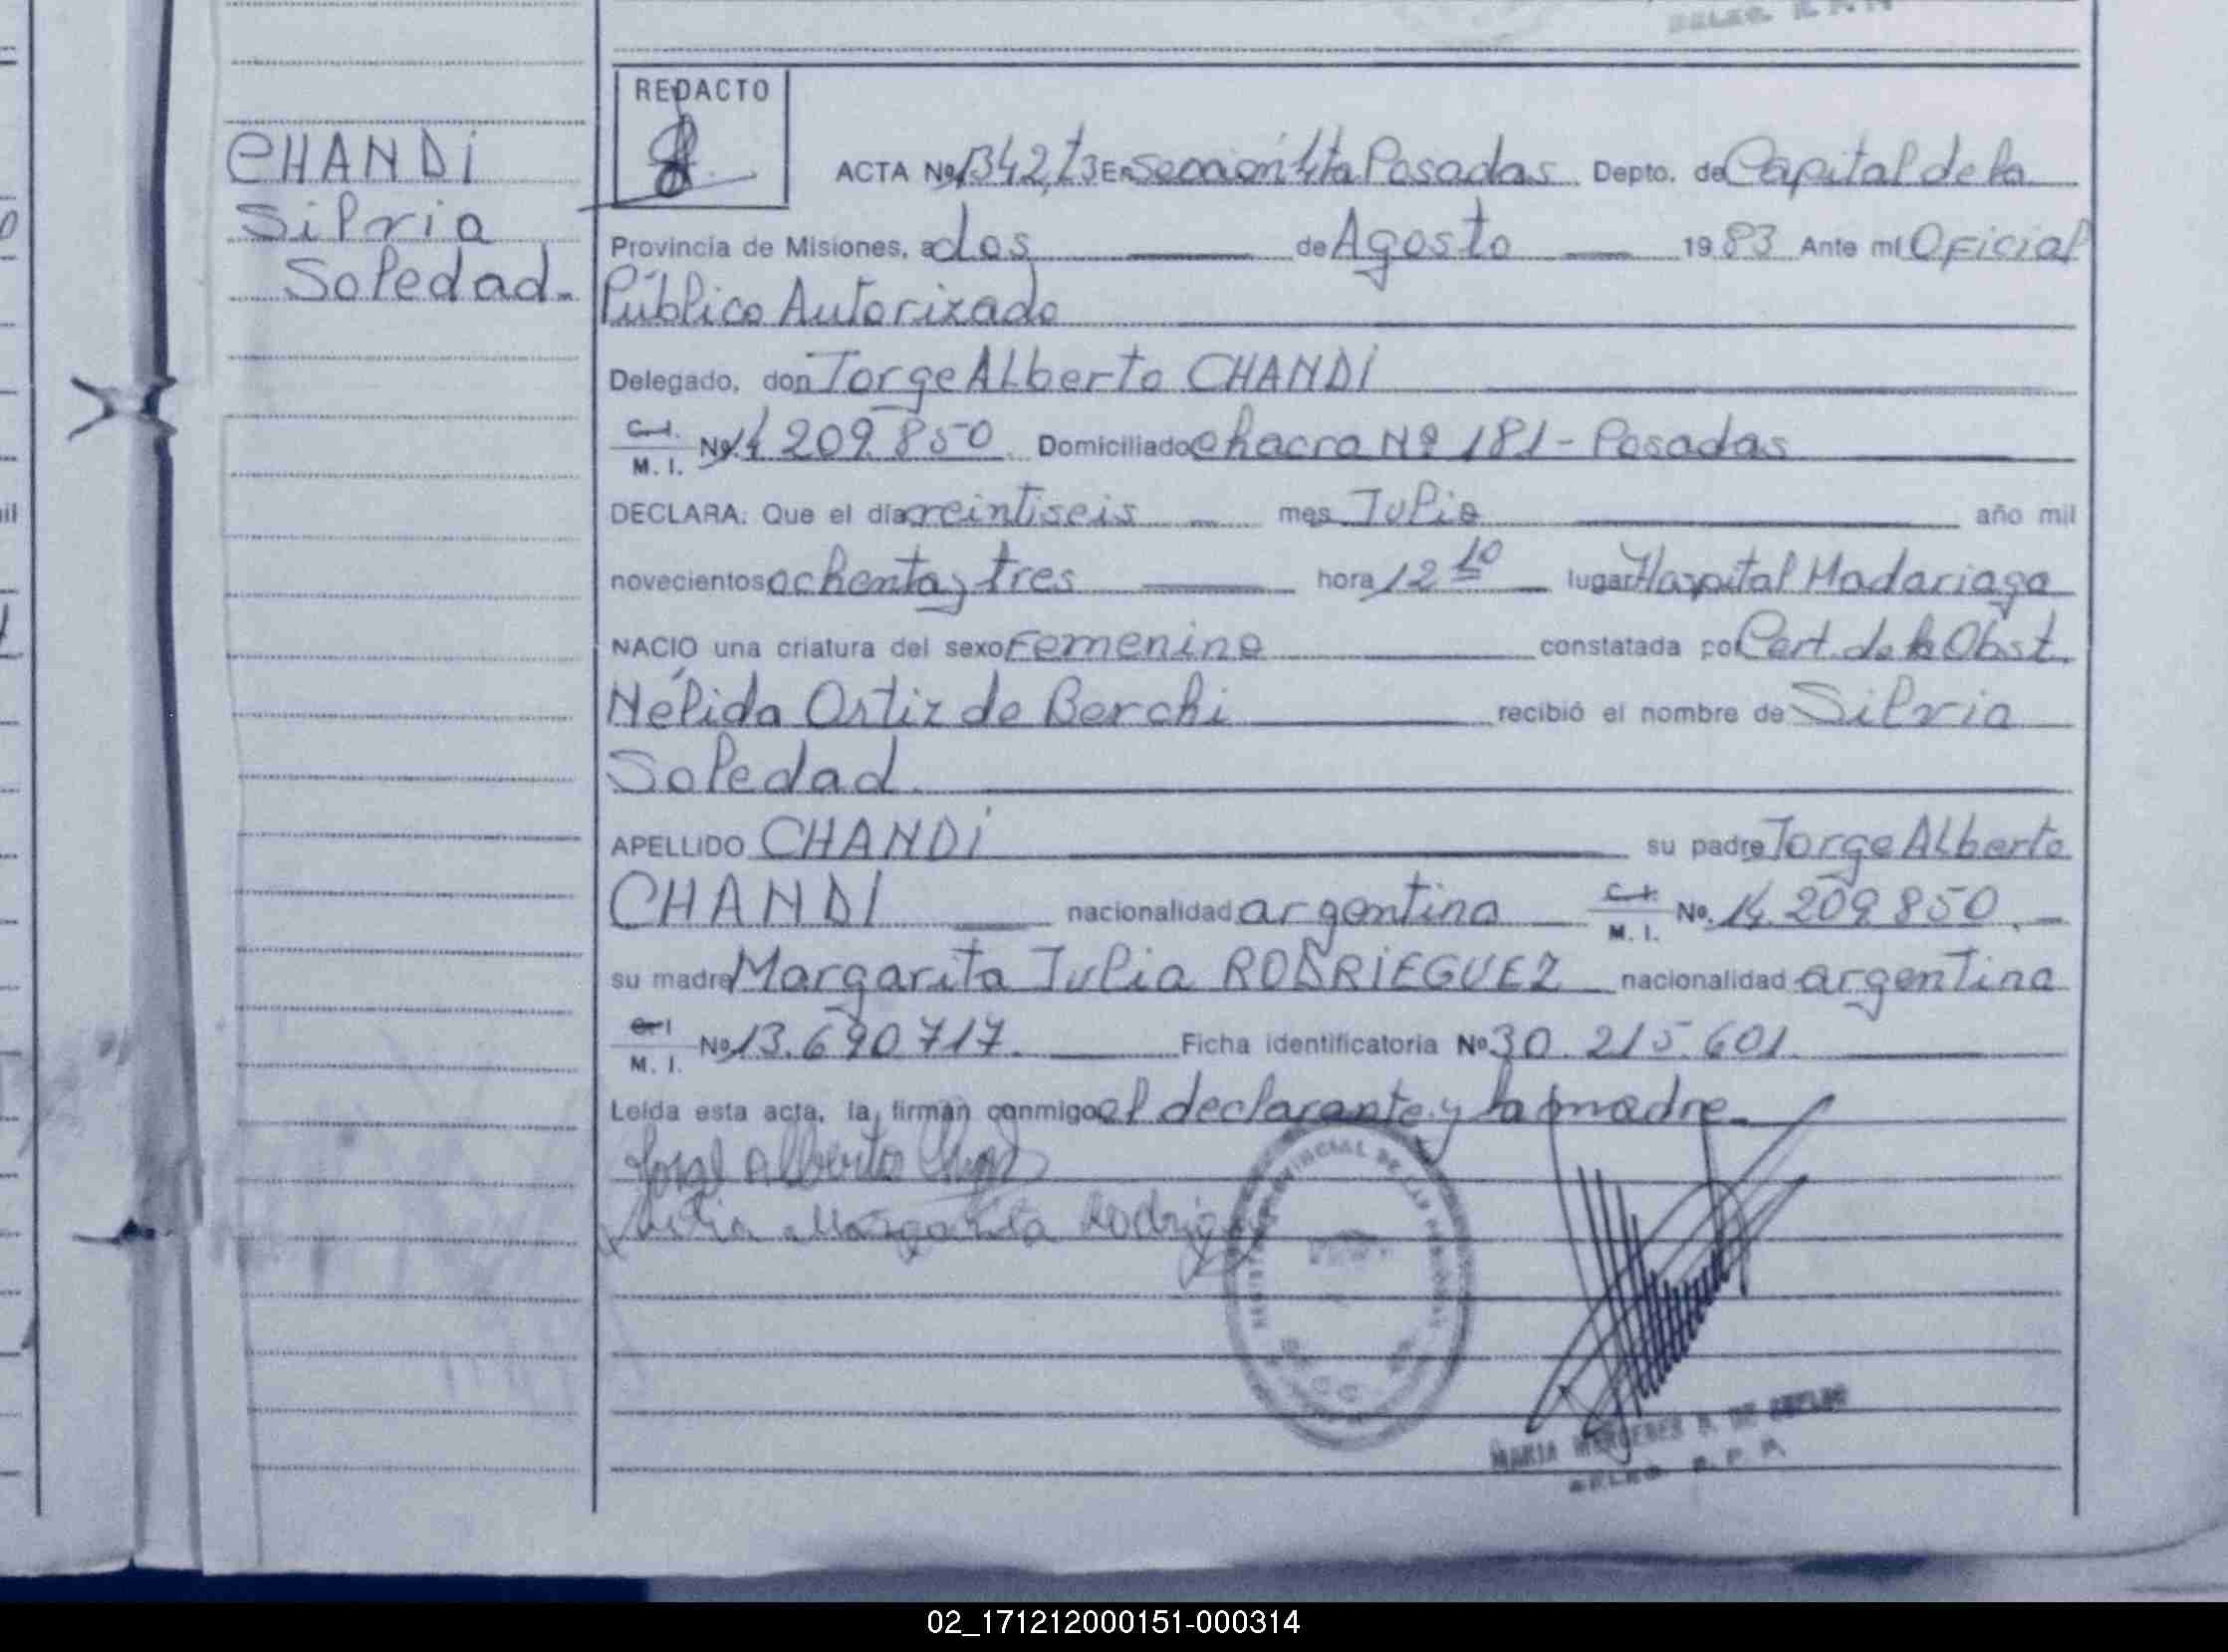 CHANDI
Silvia
Soledad.-
REDACTO
ACTA Nº 1342, T3 En Sección 4ta Posadas Depto. de Capital de la
Provincia de Misiones, a dos de Agosto 1983 Ante mí Oficial
Público Autorizado
Delegado, don Jorge Alberto CHANDI
C.I.
M. I. Nº 14.209.850 Domiciliado Chacra Nº 181 - Posadas
DECLARA: Que el día veintiseis mes Julio año mil
novecientos ochenta y tres hora 12 10 lugar Hospital Madariaga
NACIO una criatura del sexo Femenino constatada por Cert. de la Obst.
Nélida Ortiz de Berchi recibió el nombre de Silvia
Soledad.
APELLIDO CHANDI su padre Jorge Alberto
CHANDI nacionalidad argentina C.I.
M. I. Nº. 14.209.850.
su madre Margarita Julia RODRIEGUEZ nacionalidad argentina
C.I
M. I. Nº 13.690.717. Ficha identificatoria Nº 30.215.601.
Leída esta acta, la firman conmigo el declarante y la madre
Jorge Alberto
Julia Margarita
MARIA MERCEDES R. DE
DELEG. R. P. P.
02_171212000151-000314